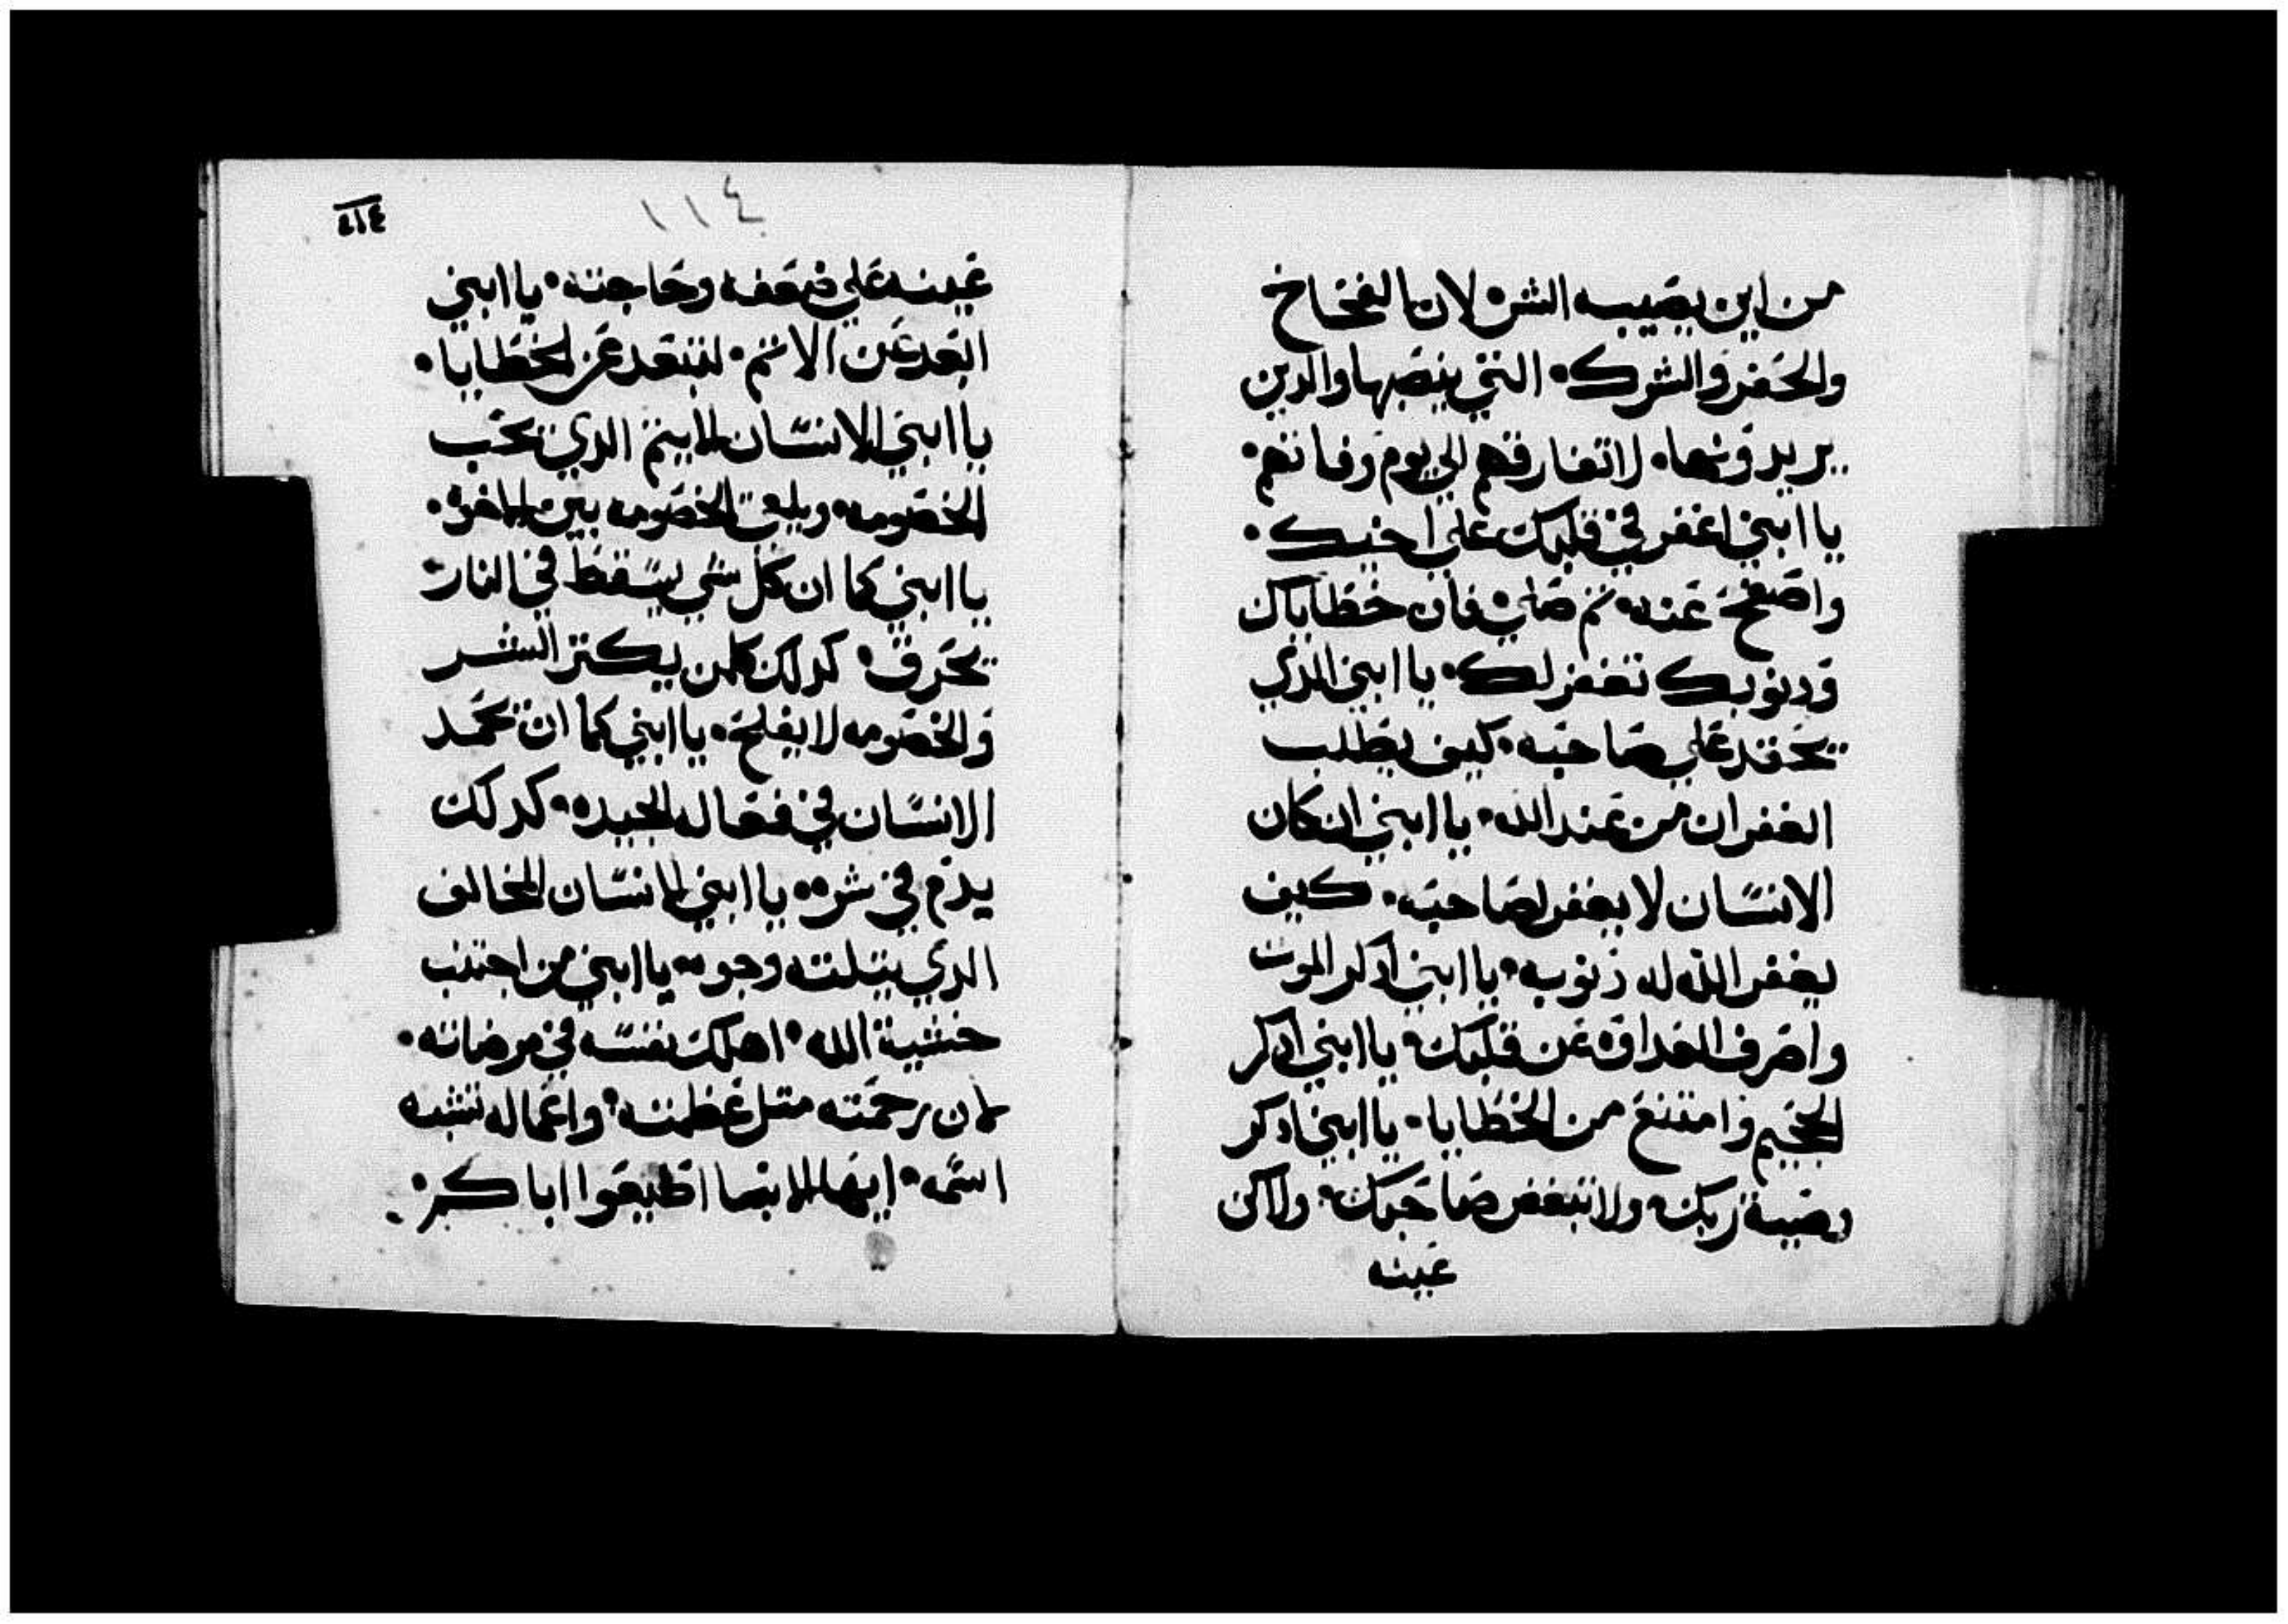 من اين يصيبه الشر۰ لان الفخاخ
والحفر والشرك۰ التي ينصبها والدين
يريدونها۰ لا تفارقهم الي يوم وفاتهم۰
يا ابني اغفر في قلبك علي اخيك۰
واصفح عنه۰ تم صلي۰ فان خطاياك
ودنوبك تغفر لك۰ يا ابني الذي
يحقد علي صاحبه۰ كيف يطلب
الغفران من عند الله۰ يا ابني ان كان
الانسان لا يغفر لصاحبه۰ كيف
يغفر الله له ذنوبه۰ يا ابني ادكر الموت
واصرف العداوه عن قلبك۰ يا ابني ادكر
الجحيم وامتنع من الخطايا۰ يا ابني ادكر
وصية ربك۰ ولا تبغض صاحبك۰ ولاكن
عينه
٤١٤
١١٤
عينه علي ضعفه وحاجته۰ يا ابني
ابعد عن الاثم۰ لتبتعد عن الخطايا۰
يا ابني الانسان الاثيم الدي يحب
الخصومه۰ ويلقي الخصومه بين الاخوه۰
يا ابني كما ان كل شي يسقط في النار
يحرق۰ كدلك كلمن يكتر الشر
والخصومه لا يفلح۰ يا ابني كما ان يحمد
الانسان في فعاله الجيده۰ كدلك
يدم في شره۰ يا ابني الانسان المخالف
الدي بتلته وجوه۰ يا ابني من اجتنب
خشية الله۰ اهلك نفسه في مرضاته۰
لان رحمته متل عظمته۰ واعماله تشبه
اسمه۰ ايها الابنا اطيعوا اباكم۰